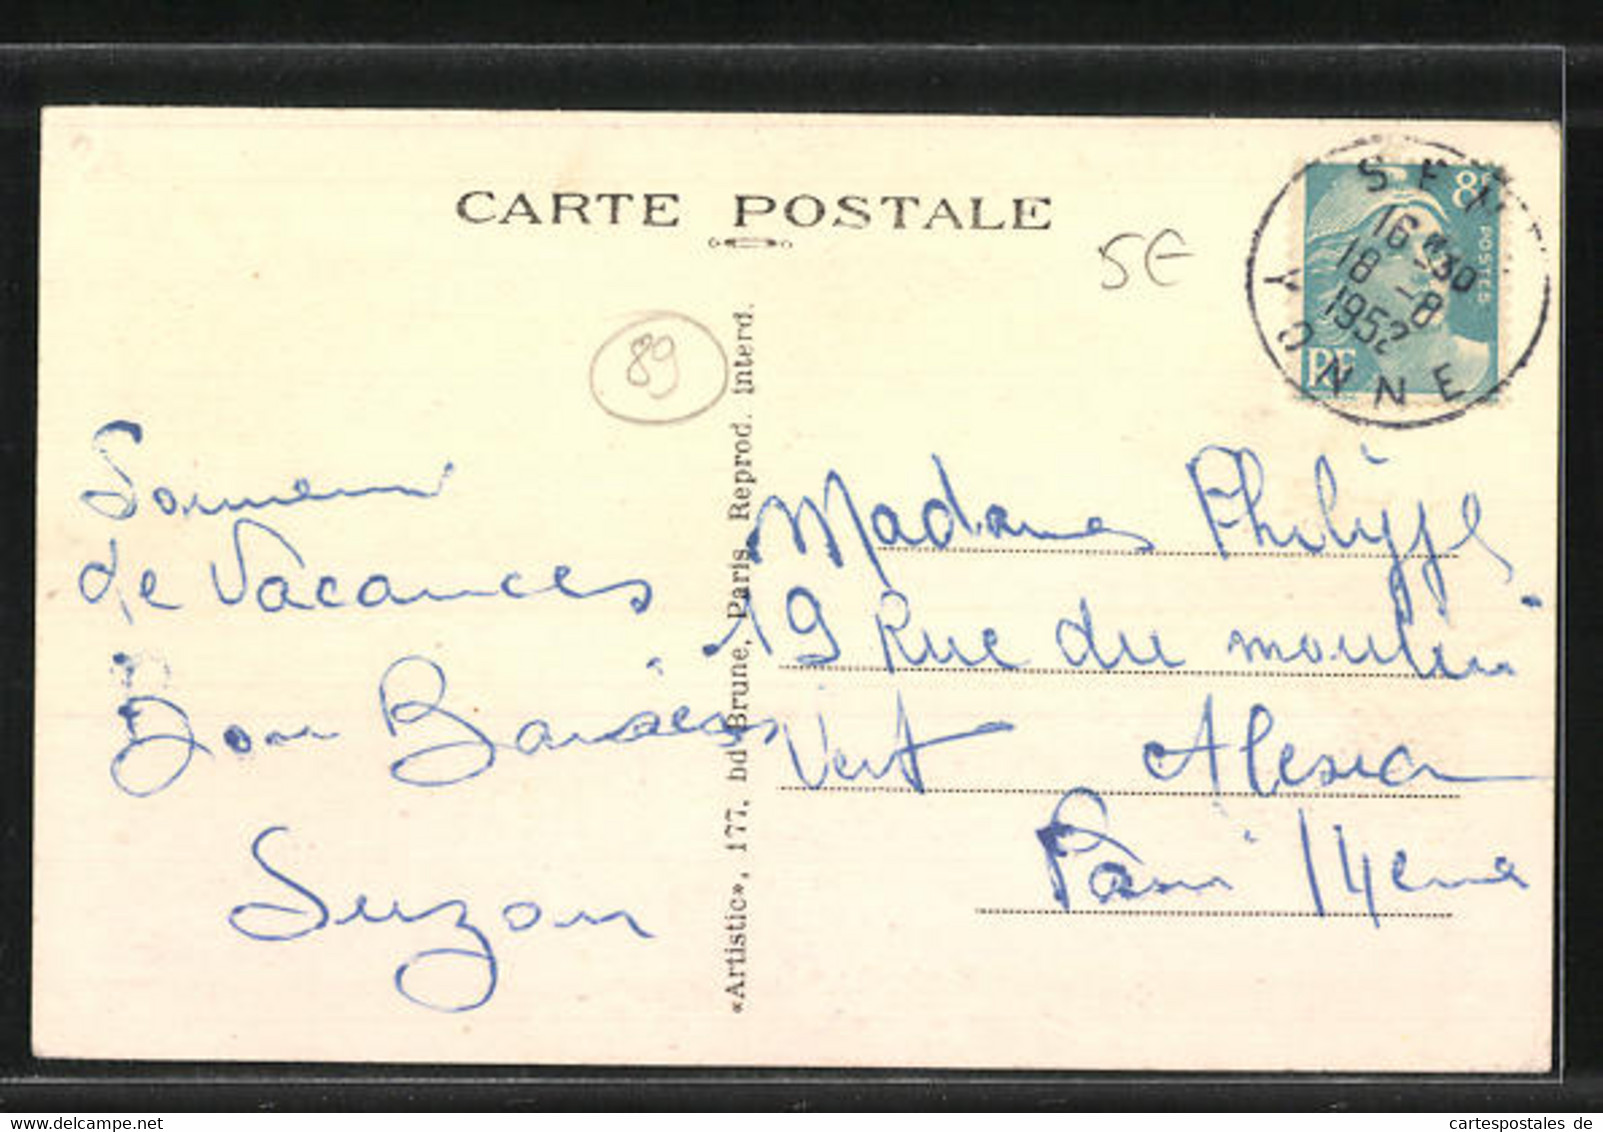 CARTE POSTALE
5€
89
8F
POSTES
RF
16 30
18 -8
1952
YONNE
Souvenir
de Vacances
Bon Baisers
Suzon
«Artistic», 177, bd Brune, Paris. Reprod. interd.
Madame Philippe
19 Rue du moulin
Vert Alesia
Paris 14eme
www.cartespostales.de